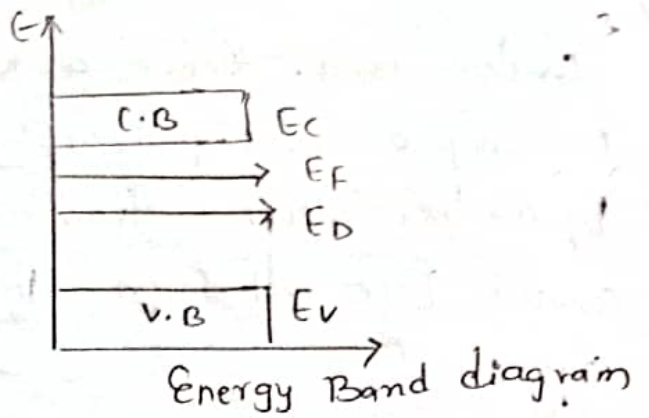 E
C.B
Ec
EF
ED
V.B
Ev
Energy Band diagram